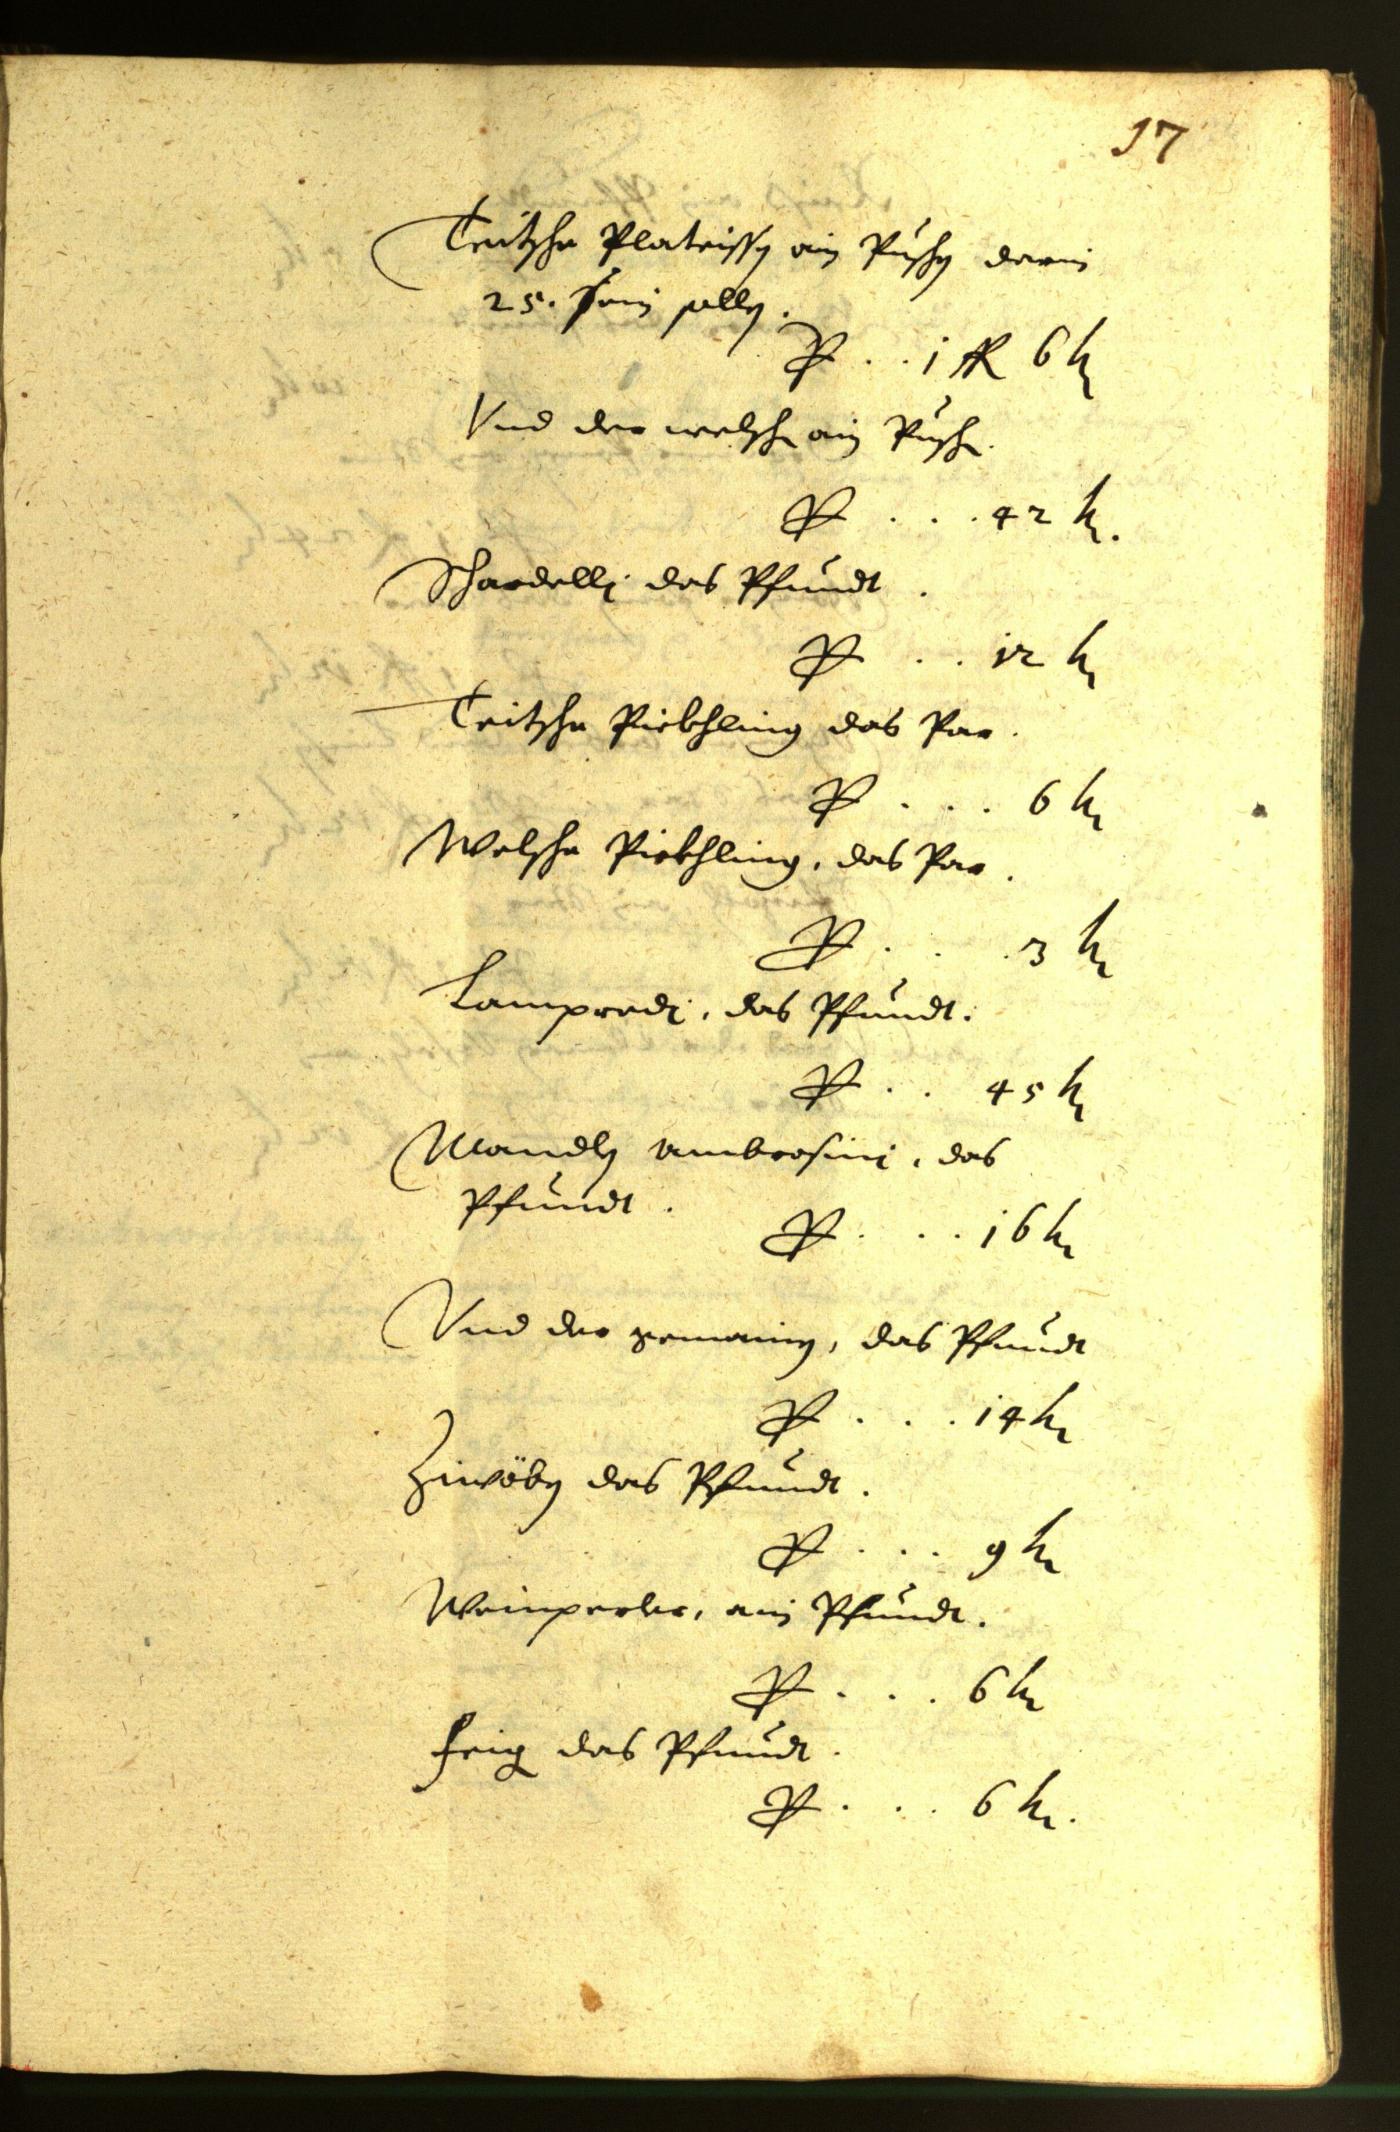 17
Teitsche Plateissen ain Puschn darin
25. sein sollen.
P . . 1 fl 6 kr
Vnd der welsch ain Pusch.
P . . . 42 kr.
Schardelli das Pfundt.
P . . 12 kr
Teitsche Pickhling das Par.
P . . . 6 kr
Welsche Pickhling, das Par.
P . . . 3 kr
Lampredi, das Pfundt.
P . . 45 kr
Mandln ambrosini, das
Pfundt.
P . . . 16 kr
Vnd der gemainen, das Pfundt
P . . . 14 kr
Ziwöbn das Pfundt.
P . . . 9 kr
Weinperler, ain Pfundt.
P . . . 6 kr
Feign das Pfundt.
P . . . 6 kr.